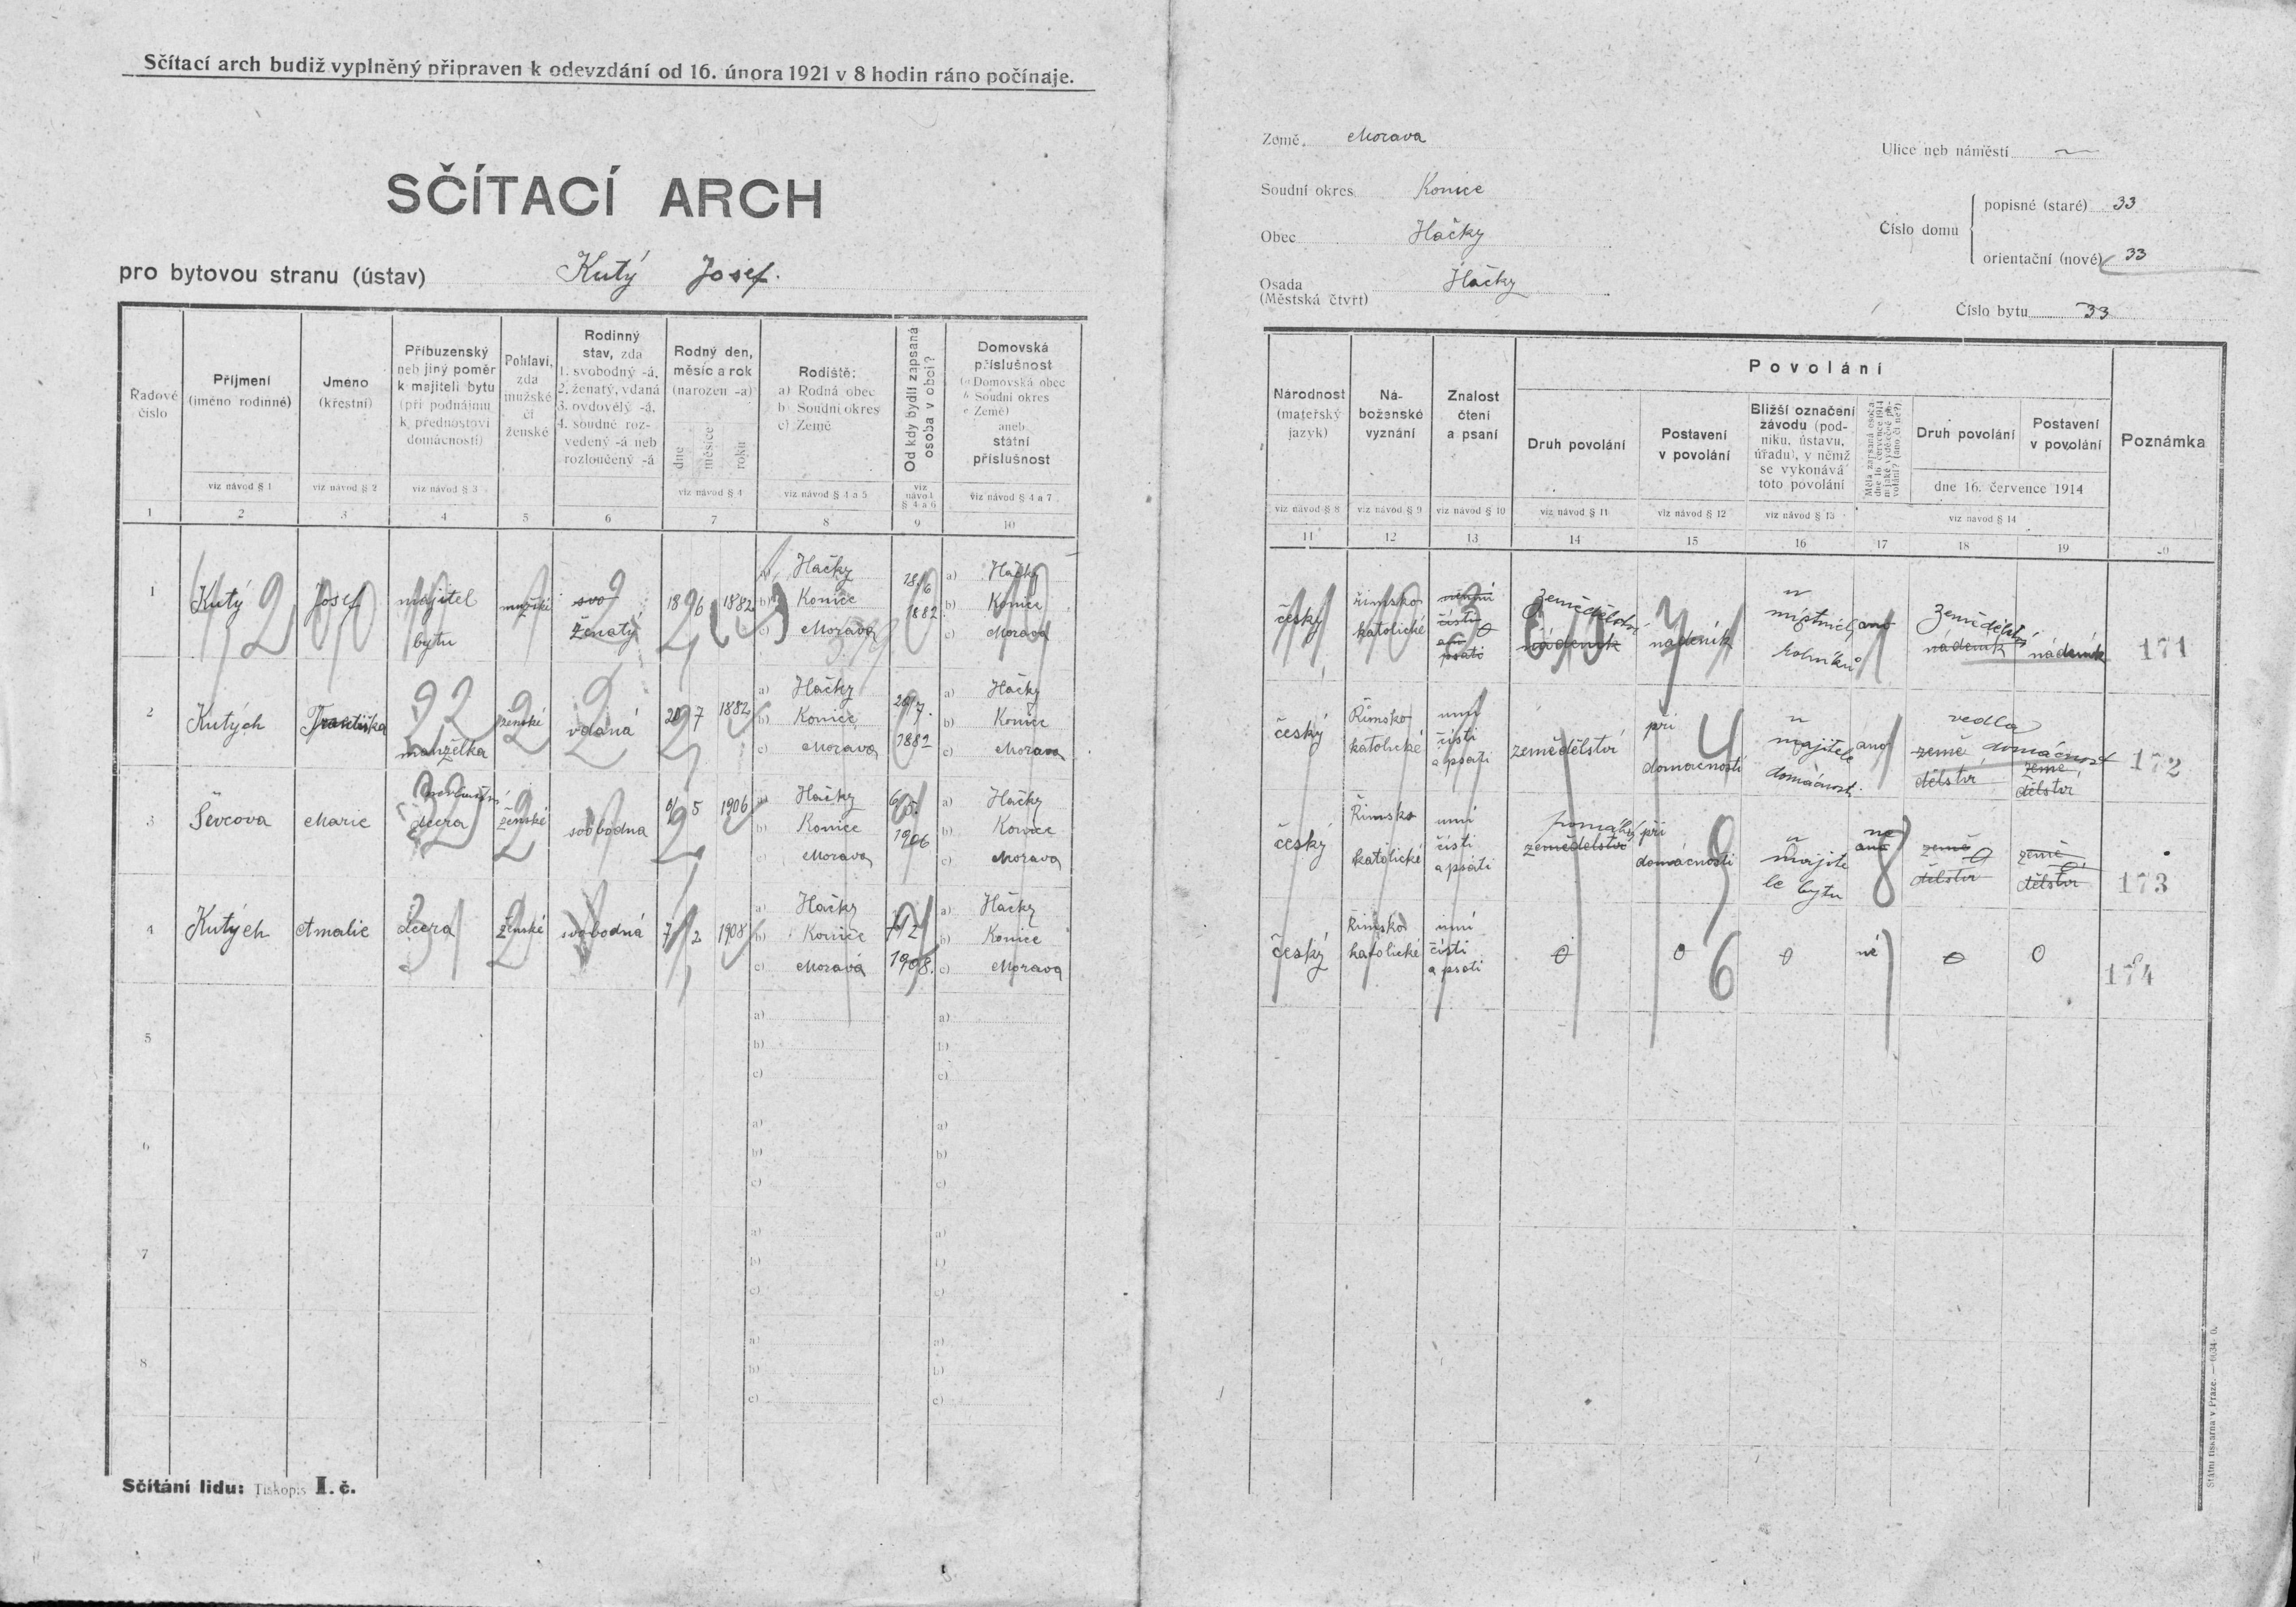 Sčítací arch budiž vyplněný připraven k odevzdání od 16. února 1921 v 8 hodin ráno počínaje.
SČÍTACÍ ARCH
pro bytovou stranu (ústav) Kutý Josef.
Řadové číslo
1
Příjmení (jméno rodinné)
viz návod § 1
2
Jméno (křestní)
viz návod § 2
3
Příbuzenský neb jiný poměr k majiteli bytu (při podnájmu k přednostovi domácnosti)
viz návod § 3
4
Pohlaví, zda mužské či ženské
5
Rodinný stav, zda 1. svobodný -á, 2. ženatý, vdaná 3. ovdovělý -á, 4. soudně rozvedený -á neb rozloučený -á
6
Rodný den, měsíc a rok (narozen -a)
dne měsíce roku
viz návod § 4
7
Rodiště: a) Rodná obec b) Soudní okres c) Země
viz návod § 4 a 5
8
Od kdy bydlí zapsaná osoba v obci?
viz návod § 4 a 6
9
Domovská příslušnost (a Domovská obec b Soudní okres c Země) aneb státní příslušnost
viz návod § 4 a 7
10
1 Kutý Josef majitel bytu mužské svo ženatý 18 6 1882 a) Hačky b) Konice c) Morava 18/6 1882 a) Hačky b) Konice c) Morava
2 Kutých Františka manželka ženské vdaná 20 7 1882 a) Hačky b) Konice c) Morava 20/7. 1882 a) Hačky b) Konice c) Morava
3 Ševcova Marie dcera ženské svobodna 6 5 1906 a) Hačky b) Konice c) Morava 6/5. 1906 a) Hačky b) Konice c) Morava
4 Kutých Amalie dcera ženské svobodná 7 2 1908 a) Hačky b) Konice c) Morava 7/2 1908. a) Hačky b) Konice c) Morava
5 a) b) c) a) b) c)
6 a) b) c) a) b) c)
7 a) b) c) a) b) c)
8 a) b) c) a) b) c)
Sčítání lidu: Tiskopis I. č.
Země Morava
Soudní okres Konice
Obec Hačky
Osada (Městská čtvrt) Hačky
Ulice neb náměstí
Číslo domu
popisné (staré) 33
orientační (nové) 33
Číslo bytu 33
Národnost (mateřský jazyk)
viz návod § 8
11
Náboženské vyznání
viz návod § 9
12
Znalost čtení a psaní
viz návod § 10
13
Povolání
Druh povolání
viz návod § 11
14
Postavení v povolání
viz návod § 12
15
Bližší označení závodu (podniku, ústavu, úřadu), v němž se vykonává toto povolání
viz návod § 13
16
17
Druh povolání
Postavení v povolání
dne 16. července 1914
viz návod § 14
18
19
Poznámka
20
český římsko katolické čísti psati 0 zemědělství nádeník nádeník u místních rolníků ano zemědělství nádeník nádeník 171
český Římsko katolické umí čísti a psáti zemědělství při domácnosti u majitele domácnosti ano vedla domácnost země dělství země dělství 172
český Římsko katolické umí čísti a psáti zemědělství při domácnosti u majite le bytu ne ano země dělství 0 země dělství 0 173
český Římsko katolické umí čísti a psati 0 0 0 né 0 0 174
Státní tiskárna v Praze.